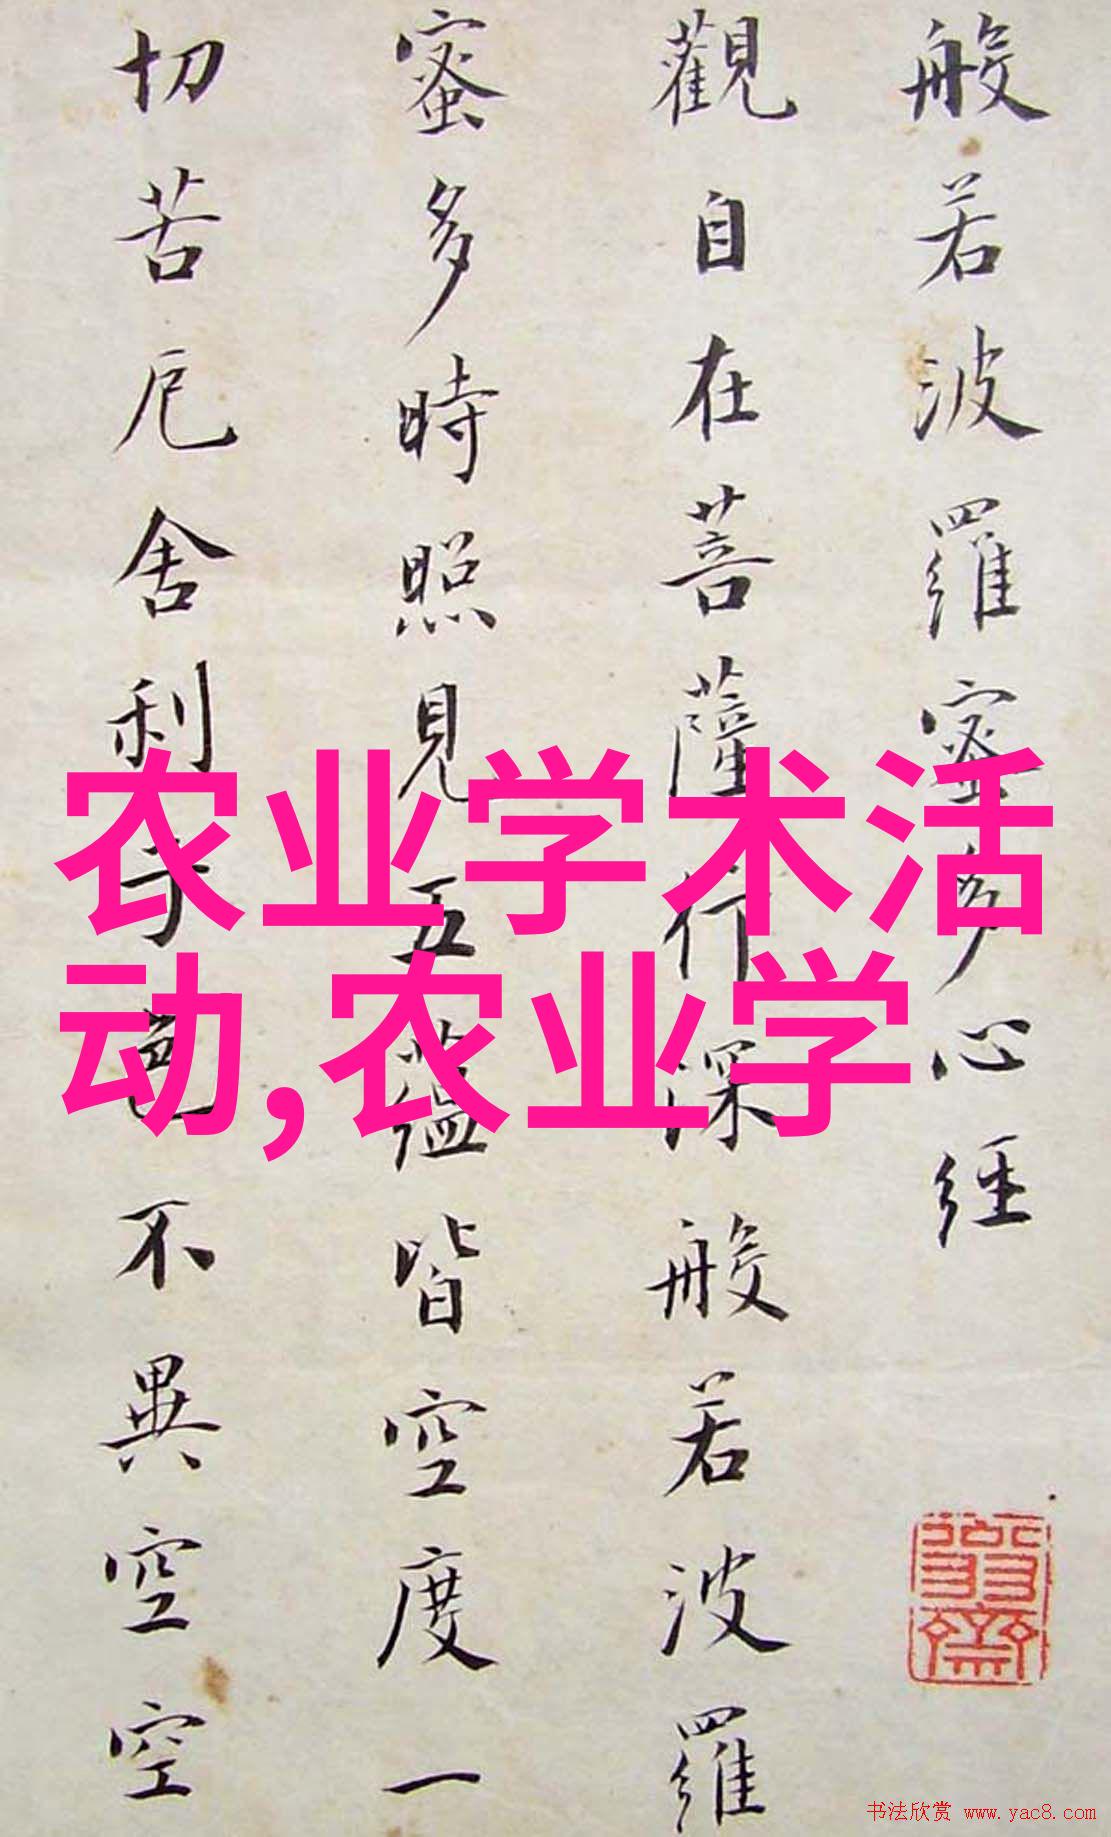 般若波羅蜜多心經
觀自在菩薩行深般若波羅
蜜多時照見五蘊皆空度一
切苦厄舍利子色不異空空
农业学术活
动,农业学
书法欣赏 www.yac8.com